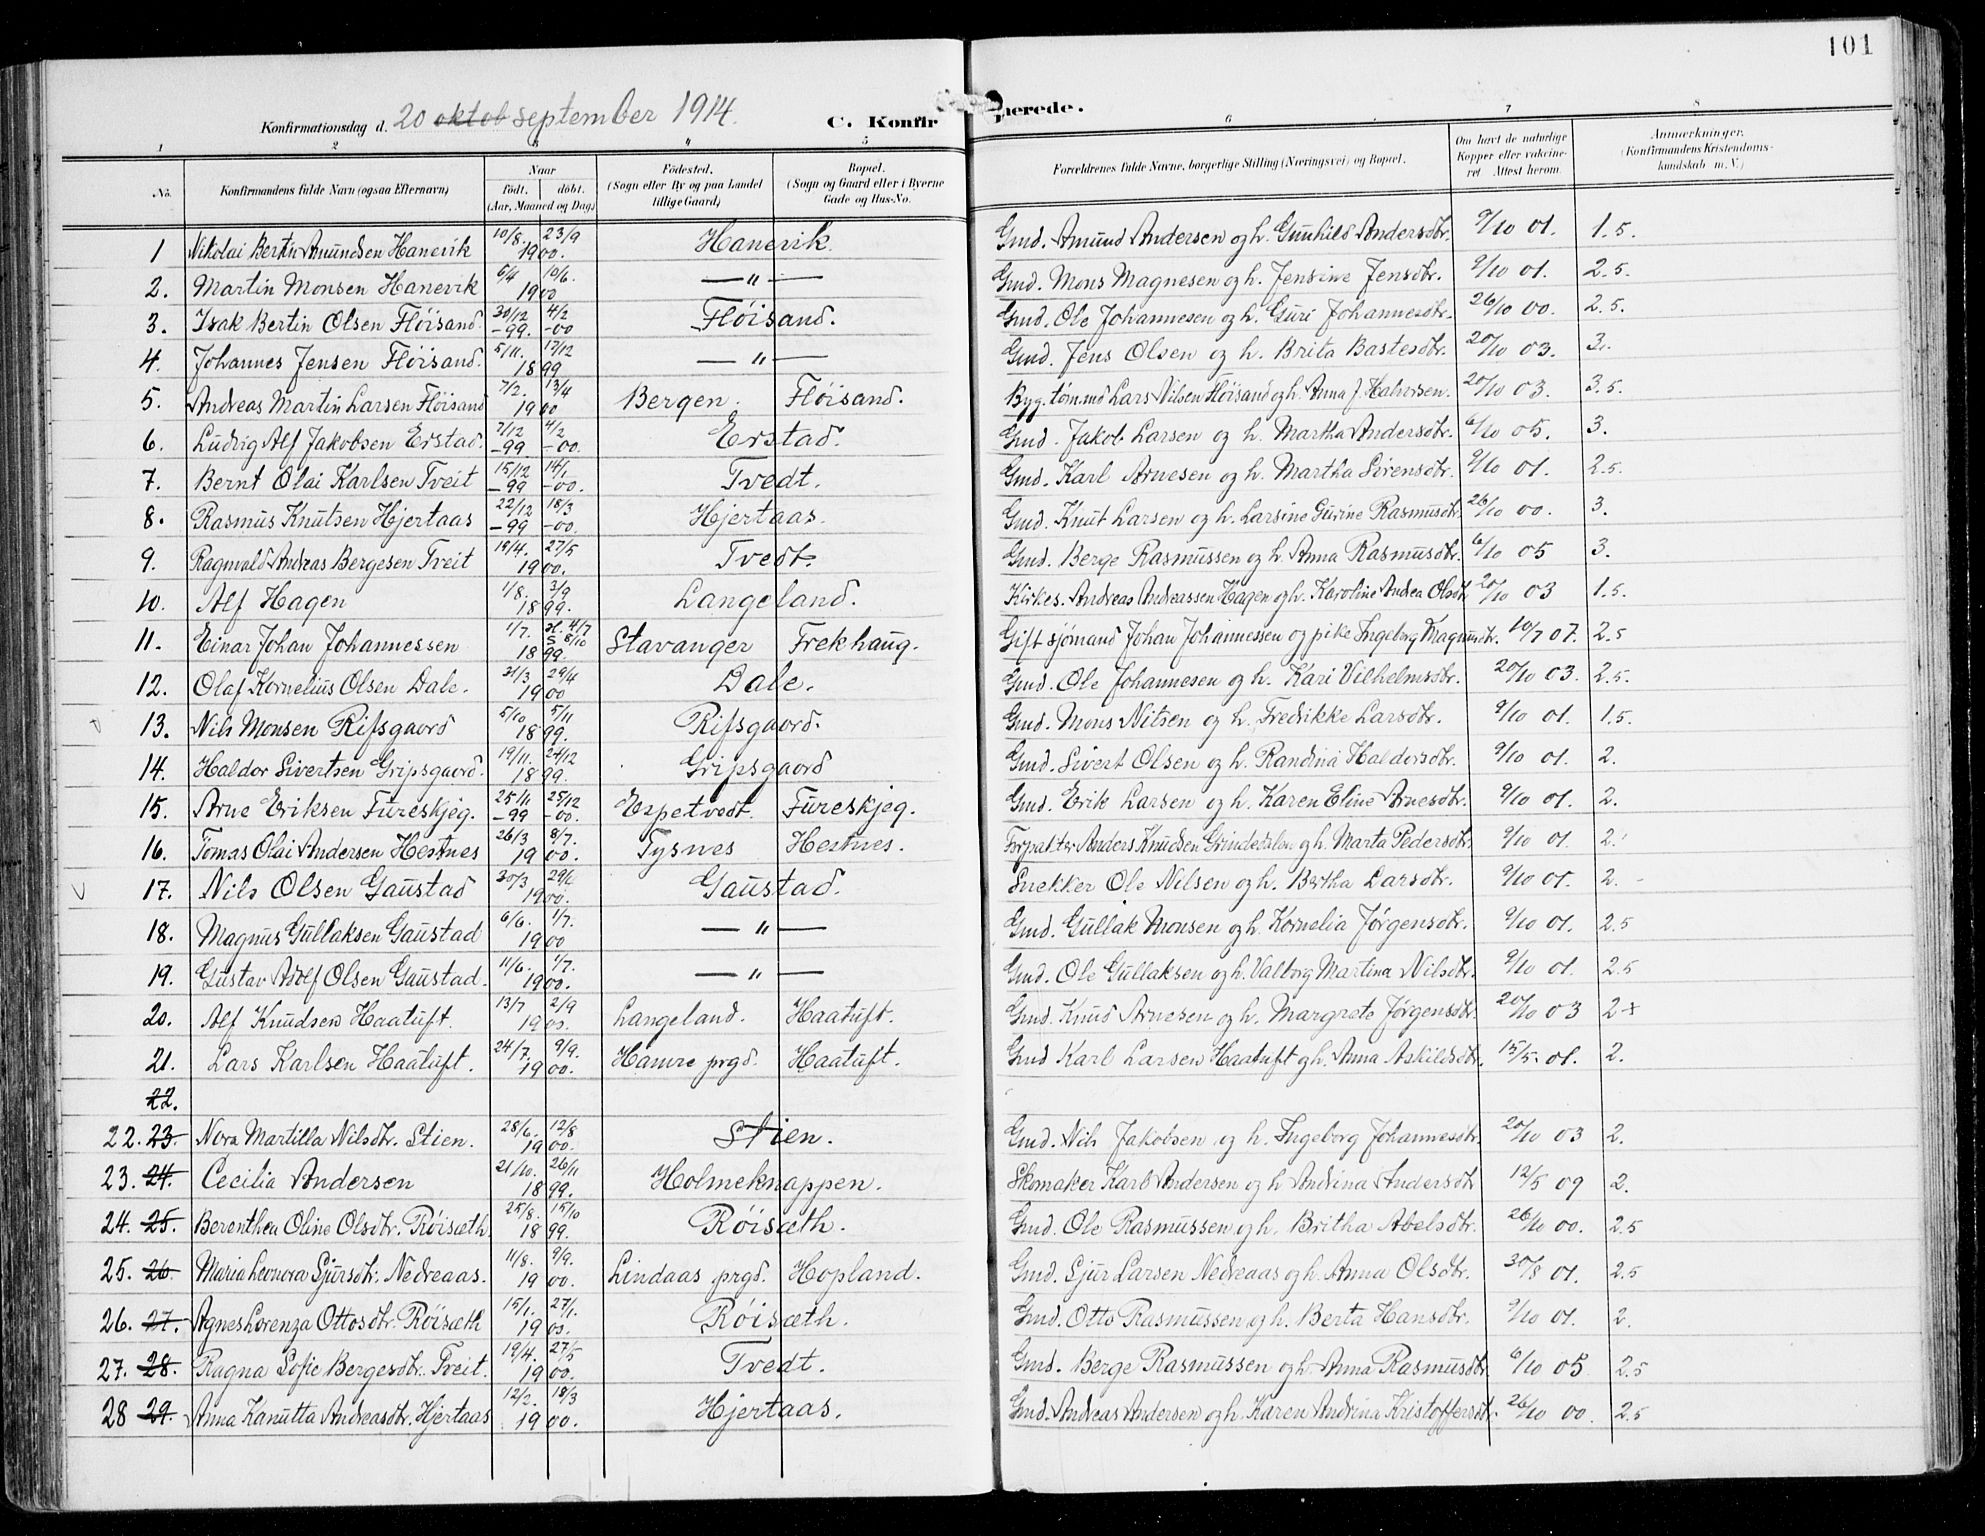 101
Konfirmationsdag d. 20 oktob september 1914. C. Konfirmerede.
1 2 3 4 5 6 7 8
No. Konfirmandens fulde Navn (ogsaa Efternavn) Naar födt. döbt. (Aar, Maaned og Dag) Födested. (Sogn eller By og paa Landet tillige Gaard) Bopæl. (Sogn og Gaard eller i Byerne Gade og Hus-No. Forældrenes fulde Navne, borgerlige Stilling (Næringsvei) og Bopæl. Om havt de naturlige Kopper eller vakcineret Attest herom. Anmærkninger. (Konfirmandens Kristendomskundskab m. V.)
1 Nikolai Bertin Amundsen Hanevik 10/8 23/9 1900. Hanevik. Gmd. Amund Andersen og h. Gunhild Andersdtr. 9/10 01. 1.5.
2. Martin Monsen Hanevik 6/4 10/6. 1900 — " — Gmd. Mons Magnesen og h. Jensine Jensdtr. 9/10 01. 2.5.
3. Isak Bertin Olsen Fløisand. 30/12 -99. 4/2 -00 Fløisand. Gmd. Ole Johannesen og h. Guri Johannesdtr. 26/10 00. 2.5.
4. Johannes Jensen Fløisand. 5/11. 17/12 1899 — " — Gmd. Jens Olsen og h. Brita Bastesdtr. 20/10 03. 3.
5. Andreas Martin Larsen Fløisand 7/2. 13/4 1900 Bergen. Fløisand. Byg.tømmd Lars Nilsen Fløisand og h. Anna J. Halvorsen. 20/10 03. 3.5.
6. Ludvig Alf Jakobsen Erstad. 7/12 -99 4/2 -00. Erstad. Gmd. Jakob Larsen og h. Martha Andersdtr. 6/10 05. 3.
7. Bernt Olai Karlsen Tveit 15/12 -99 14/1 -00. Tvedt. Gmd. Karl Arnesen og h. Martha Sørensdtr. 9/10 01. 2.5.
8. Rasmus Knutsen Hjertaas 22/12 -99 18/3 -00. Hjertaas. Gmd. Knut Larsen og h. Larsine Gurine Rasmusdtr. 26/10 00. 3.
9. Ragnvald Andreas Bergesen Tveit 19/4. 27/5 1900. Tvedt. Gmd. Berge Rasmussen og h. Anna Rasmusdtr. 6/10 05 3.
10. Alf Hagen 1/8. 3/9 1899. Langeland. Kirkes. Andreas Andreassen Hagen og h. Karoline Andrea Olsdtr 20/10 03 1.5.
11. Einar Johan Johannessen 1/7. H. 4/7 S 8/10 1899. Stavanger Frekhaug. Gift sjømand Johan Johannessen og pike Ingeborg Magnusdtr. 10/7 07. 2.5
12. Olaf Kornelius Olsen Dale. 31/3 29/4 1900 Dale. Gmd. Ole Johannesen og h. Kari Vilhelmsdtr. 20/10 03. 2.5.
13. Nils Monsen Rifsgaard 5/10 5/11 1899. Rifsgaard. Gmd. Mons Nilsen og h. Fredrikke Larsdtr. 9/10 01. 1.5.
14. Haldor Sivertsen Gripsgaard. 19/11. 24/12 1899. Gripsgaard Gmd. Sivert Olsen og h. Randina Haldorsdtr. 9/10 01. 2.
15. Arne Eriksen Fureskjeg. 25/11 -99 25/12 -00. Espetvedt. Fureskjeg. Gmd. Erik Larsen og h. Karen Eline Arnesdtr. 9/10 01. 2.
16. Tomas Olai Andersen Hestnes 26/3 8/7. 1900. Tysnes Hestnes. Forpakter Anders Knudsen Grindedalen og h. Marta Pedersdtr. 9/10 01. 2.
17. Nils Olsen Gaustad 30/3 29/6 1900. Gaustad. Snekker Ole Nilsen og h. Bertha Larsdtr. 9/10 01. 2.
18. Magnus Gullaksen Gaustad 6/6. 1/7. 1900 — " — Gmd. Gullak Monsen og h. Kornelia Jørgensdtr. 9/10 01. 2.5
19. Gustav Adolf Olsen Gaustad. 11/6. 1/7. 1900. — " — Gmd. Ole Gullaksen og h. Valborg Martina Nilsdtr. 9/10 01. 2.5
20. Alf Knudsen Haatuft. 13/7 2/9 1900. Langeland. Haatuft. Gmd. Knud Arnesen og h. Margrete Jørgensdtr. 20/10 03 2+
21. Lars Karlsen Haatuft. 24/7. 9/9. 1900. Hamre prgd. Haatuft. Gmd Karl Larsen Haatuft og h. Anna Askildsdtr. 15/5. 01. 2.
22.
22. 23. Nora Martilla Nilsdtr. Stien. 28/6. 12/8 1900. Stien. Gmd. Nils Jakobsen og h. Ingeborg Johannesdtr. 20/10 03 2.
23. 24. Cecilia Andersen 21/10. 26/11 1899. Holmeknappen. Skomaker Karl Andersen og h Andrina Andersdtr 12/5 09 2.
24. 25. Berenthea Oline Olsdtr. Røisæth. 25/8. 15/10 1899. Røisæth. Gmd. Ole Rasmussen og h. Britha Abelsdtr. 26/10 00. 2.5
25. 26. Maria Leonora Sjursdtr. Nedreaas. 11/8. 9/9. 1900. Lindaas prgd. Hopland. Gmd. Sjur Larsen Nedreaas og h. Anna Olsdtr. 30/8 01. 2.5
26. 27. Agnes Lorenza Ottosdtr. Røisæth 15/1. 27/1. 1900. Røisæth. Gmd. Otto Rasmussen og h. Berta Hansdtr. 9/10 01. 2.
27. 28. Ragna Sofie Bergesdtr. Tveit. 19/4. 27/5 1900. Tvedt. Gmd. Berge Rasmussen og h. Anna Rasmusdtr. 6/10 05 2.5
28 29. Anna Kanutta Andreasdtr. Hjertaas 12/2. 18/3 1900. Hjertaas. Gmd. Andreas Andersen og h. Karen Andrina Kristoffersdtr. 26/10 00. 2.5